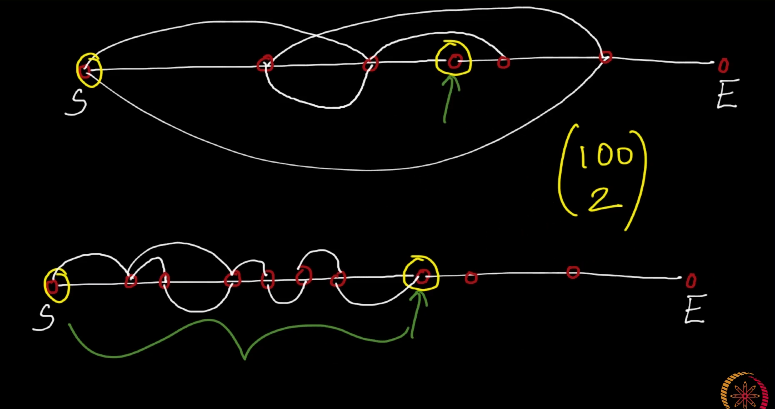 S
E
(100
2)
S
E